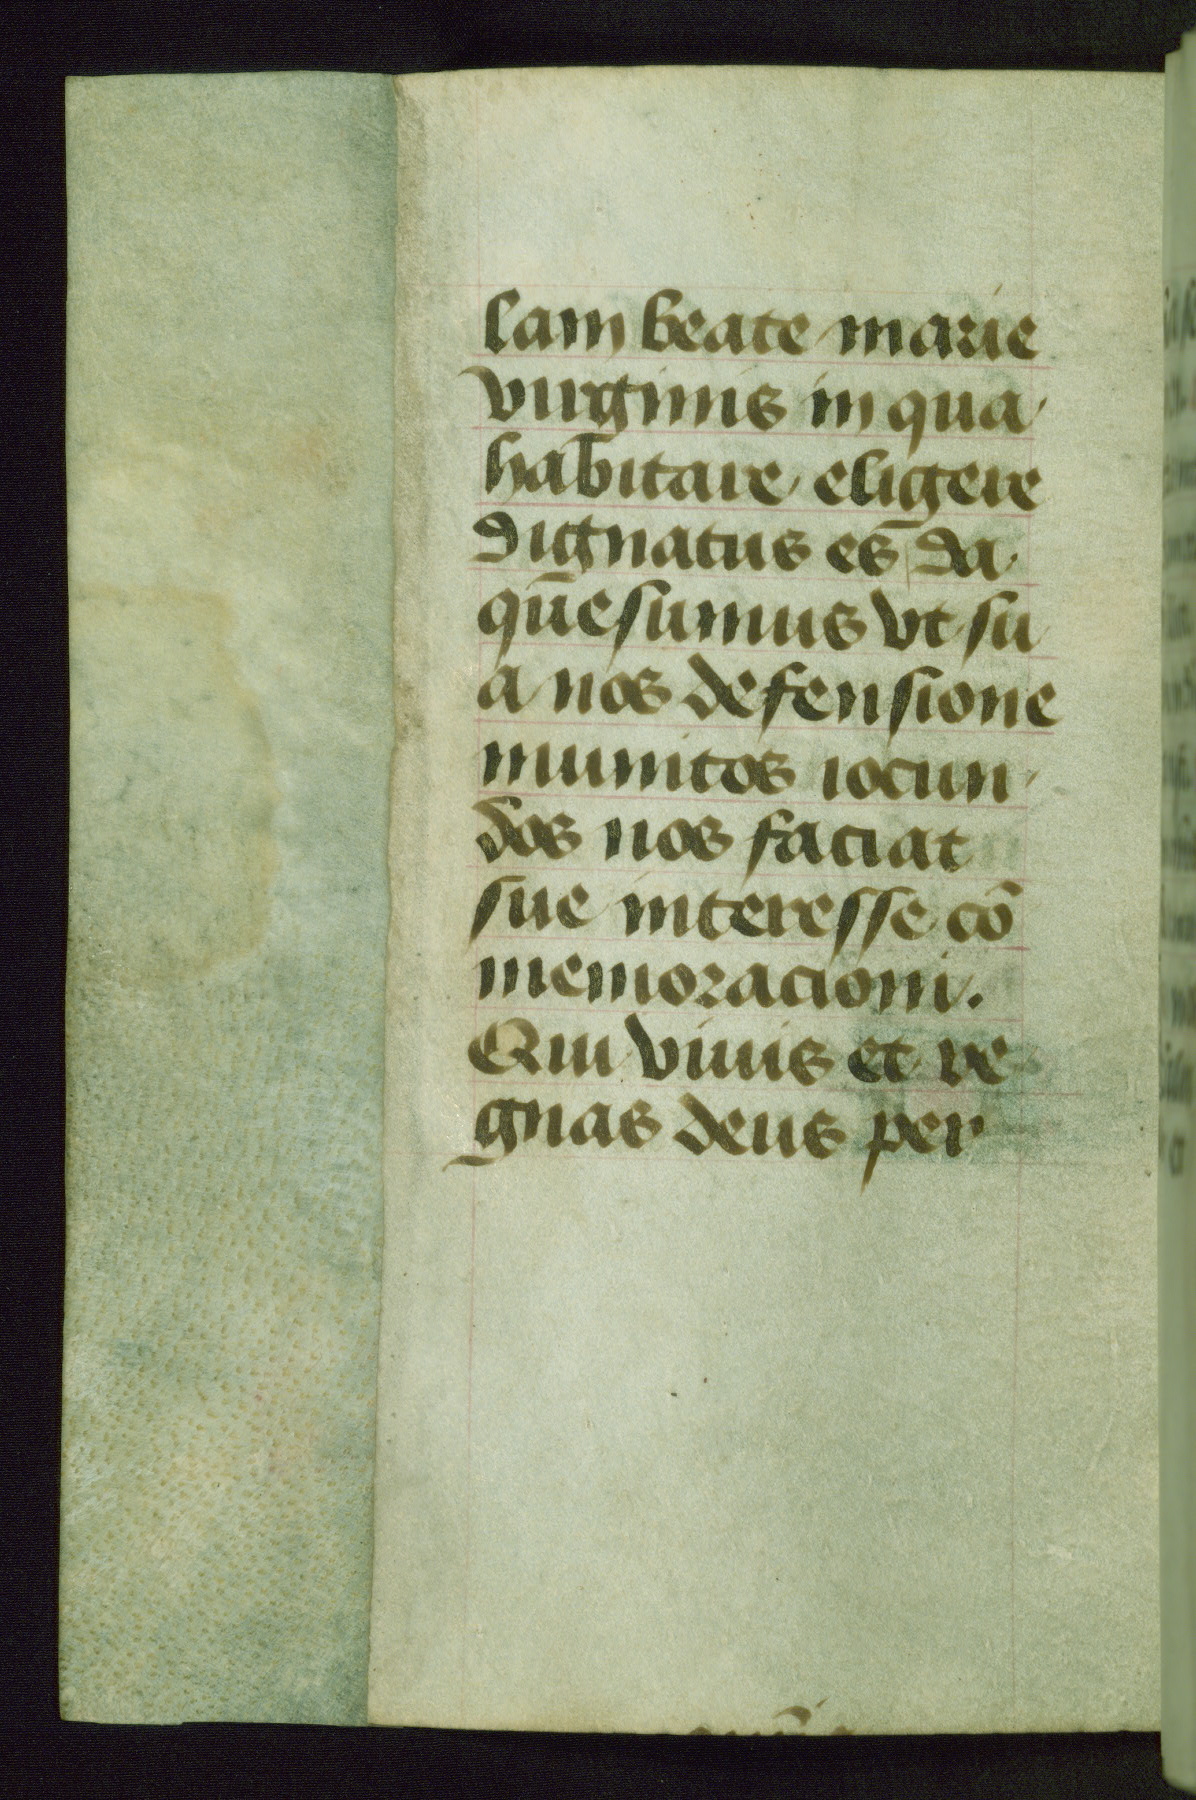 lam beate marie
virginis in qua
habitare eligere
dignatus es da
quesumus vt su
a nos defensione
munitos iocun
dos nos faciat
sue interesse cō
memoracioni.
Qui viuis et re
gnas deus per